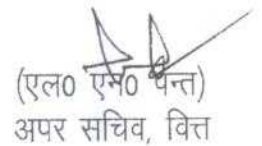 (एल0 एन0 पन्त)
अपर सचिव, वित्त